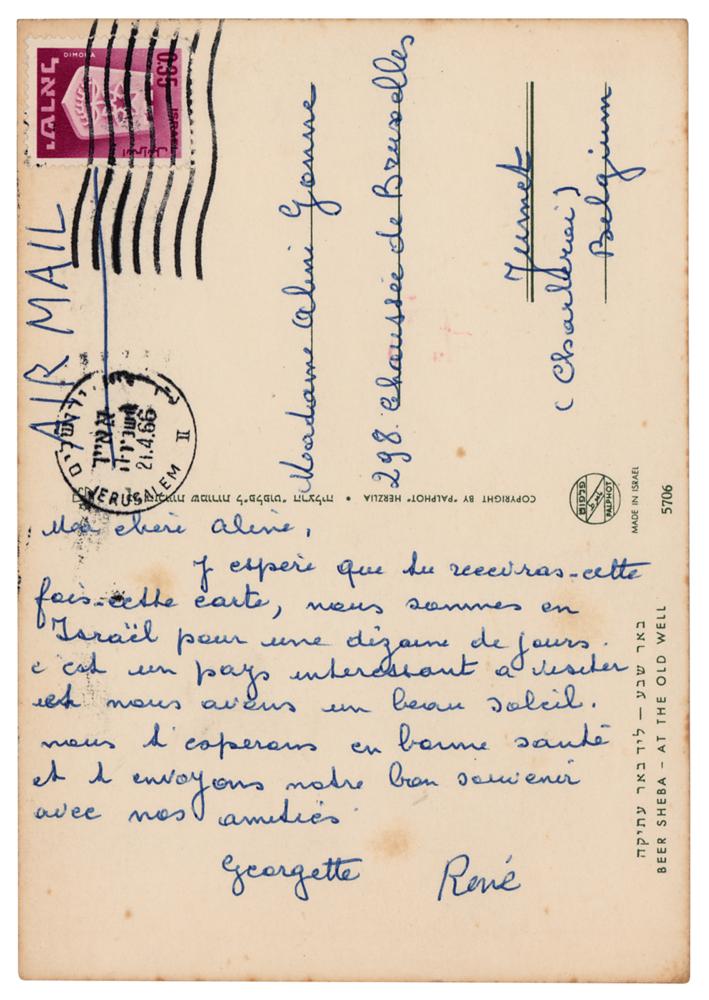 Ma chère Aline,
J espère que tu recevras cette
fois-cette carte, nous sommes en
Israël pour une dizaine de jours.
c est un pays interessant a visiter
et nous avons un beau soleil.
nous t esperons en bonne santé
et t envoyons notre bon souvenir
avec nos amitiés
Georgette René
AIR MAIL
DIMONA
0.35
ישראל
ISRAEL
اسرائيل
ירושלים
21.4.66
JERUSALEM
II
Madame Aline Gonne
298. Chaussée de Bruxelles
Jumet
(Charleroi)
Belgium
COPYRIGHT BY "PALPHOT" HERZLIA • הרצליה "פלפוט"ל שמורות
פלפוט
PALPHOT
MADE IN ISRAEL
5706
באר שבע – ליד באר עתיקה
BEER SHEBA – AT THE OLD WELL